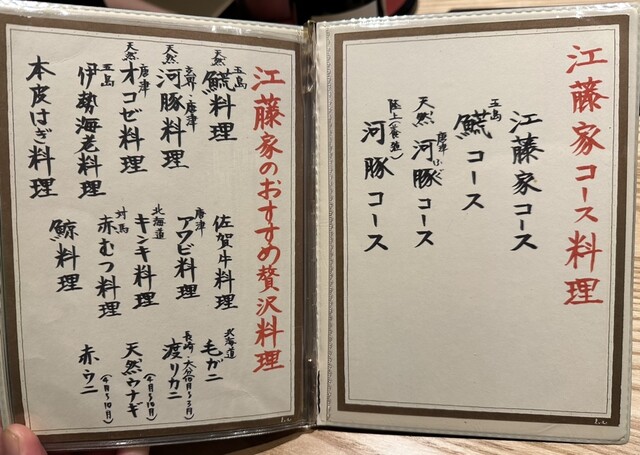 江藤家コース料理
江藤家コース
五島
鯍コース
天然
唐津ふぐ
河豚コース
陸上(養殖)
河豚コース
江藤家のおすすめ贅沢料理
天然
五島
料理
天然
玄界・唐津
河豚料理
天然
唐津
オコゼ料理
五島
伊勢海老料理
本皮はぎ料理
佐賀牛料理
唐津
アワビ料理
北海道
キンキ料理
対馬
赤むつ料理
鯨料理
北海道
毛ガニ
長崎・大分
渡リカニ
天然ウナギ
(4月〜10月)
赤ウニ
(4月〜10月)